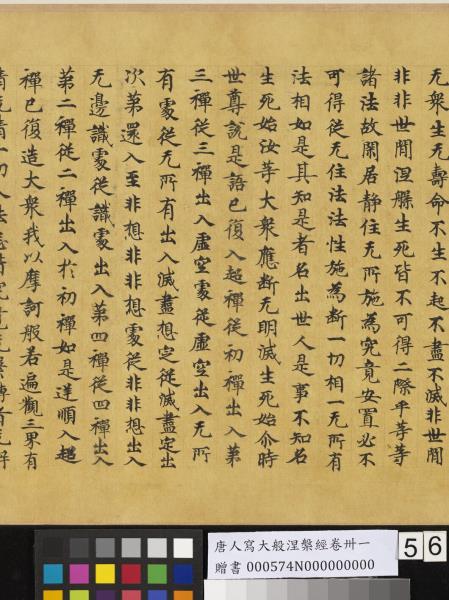 无衆生无壽命不生不起不盡不滅非世間
非非世間涅槃生死皆不可得二際平等等
諸法故閑居静住无所施為究竟安置必不
可得從无住法法性施為断一切相一无所有
法相如是其知是者名出世人是事不知名
生死始汝等大衆應断无明滅生死始尒時
世尊說是語已復入超禪從初禪出入第
三禪從三禪出入虛空處從虛空出入无所
有處從无所有出入滅盡想定從滅盡定出
次第還入至非想非非想處從非非想出入
无邊識處從識處出入第四禪從四禪出入
第二禪從二禪出入於初禪如是逆順入超
禪已復造大衆我以摩訶般若遍觀三界有
唐人寫大般涅槃經卷卅一
贈書 000574N000000000
56